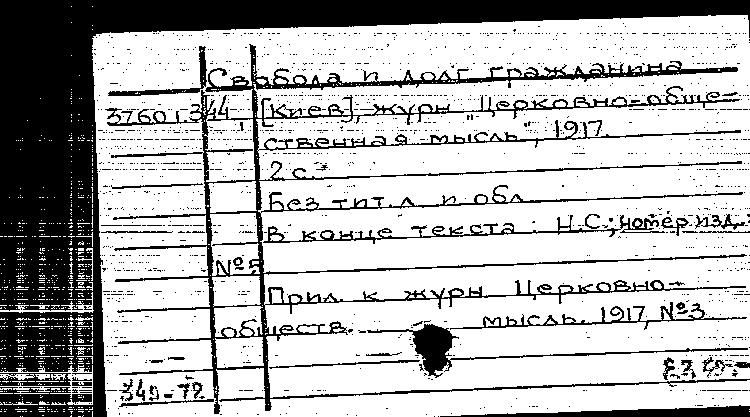 Свобода и долг гражданина
37601.344 [Киев], журн "Церковно-обще-
ственная мысль", 1917.
2 с.
Без тит. л. и обл.
В конце текста: Н.С.; номер изд.:
№5
Прил. к журн Церковно-
обществ. мысль. 1917, №3
349-72